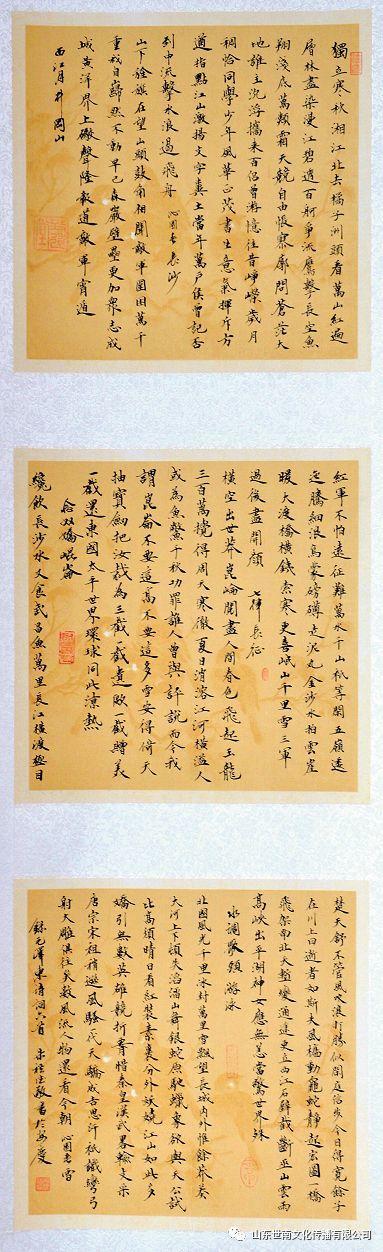 獨立寒秋湘江北去橘子洲頭看萬山紅遍
層林盡染漫江碧透百舸爭流鷹擊長空魚
翔淺底萬類霜天競自由悵寥廓問蒼茫大
地誰主沉浮攜來百侶曾游憶往昔崢嶸歲月
稠恰同學少年風華正茂書生意氣揮斥方
遒指點江山激揚文字糞土當年萬戶侯曾記否
到中流擊水浪遏飛舟 沁園春長沙
山下旌旗在望山頭鼓角相聞敵軍圍困萬千
重我自巋然不動早已森嚴壁壘更加眾志成
城黃洋界上礮聲隆報道敵軍宵遁
西江月井岡山
紅軍不怕遠征難萬水千山祇等閑五嶺逶
迤騰細浪烏蒙磅礴走泥丸金沙水拍雲崖
暖大渡橋橫鐵索寒更喜岷山千里雪三軍
過後盡開顏 七律長征
橫空出世莽崑崙閱盡人間春色飛起玉龍
三百萬攪得周天寒徹夏日消溶江河橫溢人
或為魚鱉千秋功罪誰人曾與評說而今我
謂崑崙不要這高不要這多雪安得倚天
抽寶劍把汝裁為三截一截遺歐一截贈美
一截還東國太平世界環球同此涼熱
念奴嬌崑崙
纔飲長沙水又食武昌魚萬里長江橫渡極目
楚天舒不管風吹浪打勝似閑庭信步今日得寬餘子
在川上曰逝者如斯夫風檣動龜蛇靜起宏圖一橋
飛架南北天塹變通途更立西江石壁截斷巫山雲雨
高峽出平湖神女應無恙當驚世界殊
水調歌頭游泳
北國風光千里冰封萬里雪飄望長城內外惟餘莽莽
大河上下頓失滔滔山舞銀蛇原馳蠟象欲與天公試
比高須晴日看紅裝素裹分外妖嬈江山如此多
嬌引無數英雄競折腰惜秦皇漢武略輸文采
唐宗宋祖稍遜風騷一代天驕成吉思汗祇識彎弓
射大雕俱往矣數風流人物還看今朝 沁園春雪
錄毛澤東詩詞六首 敬書於
山东世南文化传播有限公司